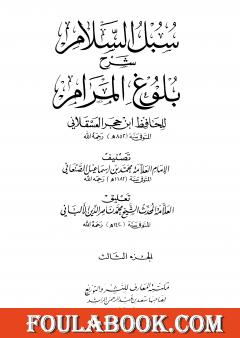 سبل السلام
شرح
بلوغ المرام
للحافظ ابن حجر العسقلاني
المتوفى سنة (٨٥٢هـ) رحمه الله
تصنيف
الإمام العلامة محمد بن إسماعيل الصنعاني
المتوفى سنة (١١٨٢هـ) رحمه الله
تعليق
العلامة المحدث الشيخ محمد ناصر الدين الألباني
المتوفى سنة (١٤٢٠هـ) رحمه الله
الجزء الثالث
مكتبة المعارف للنشر والتوزيع
لصاحبها سعد بن عبد الرحمن الراشد
FOULABOOK.COM